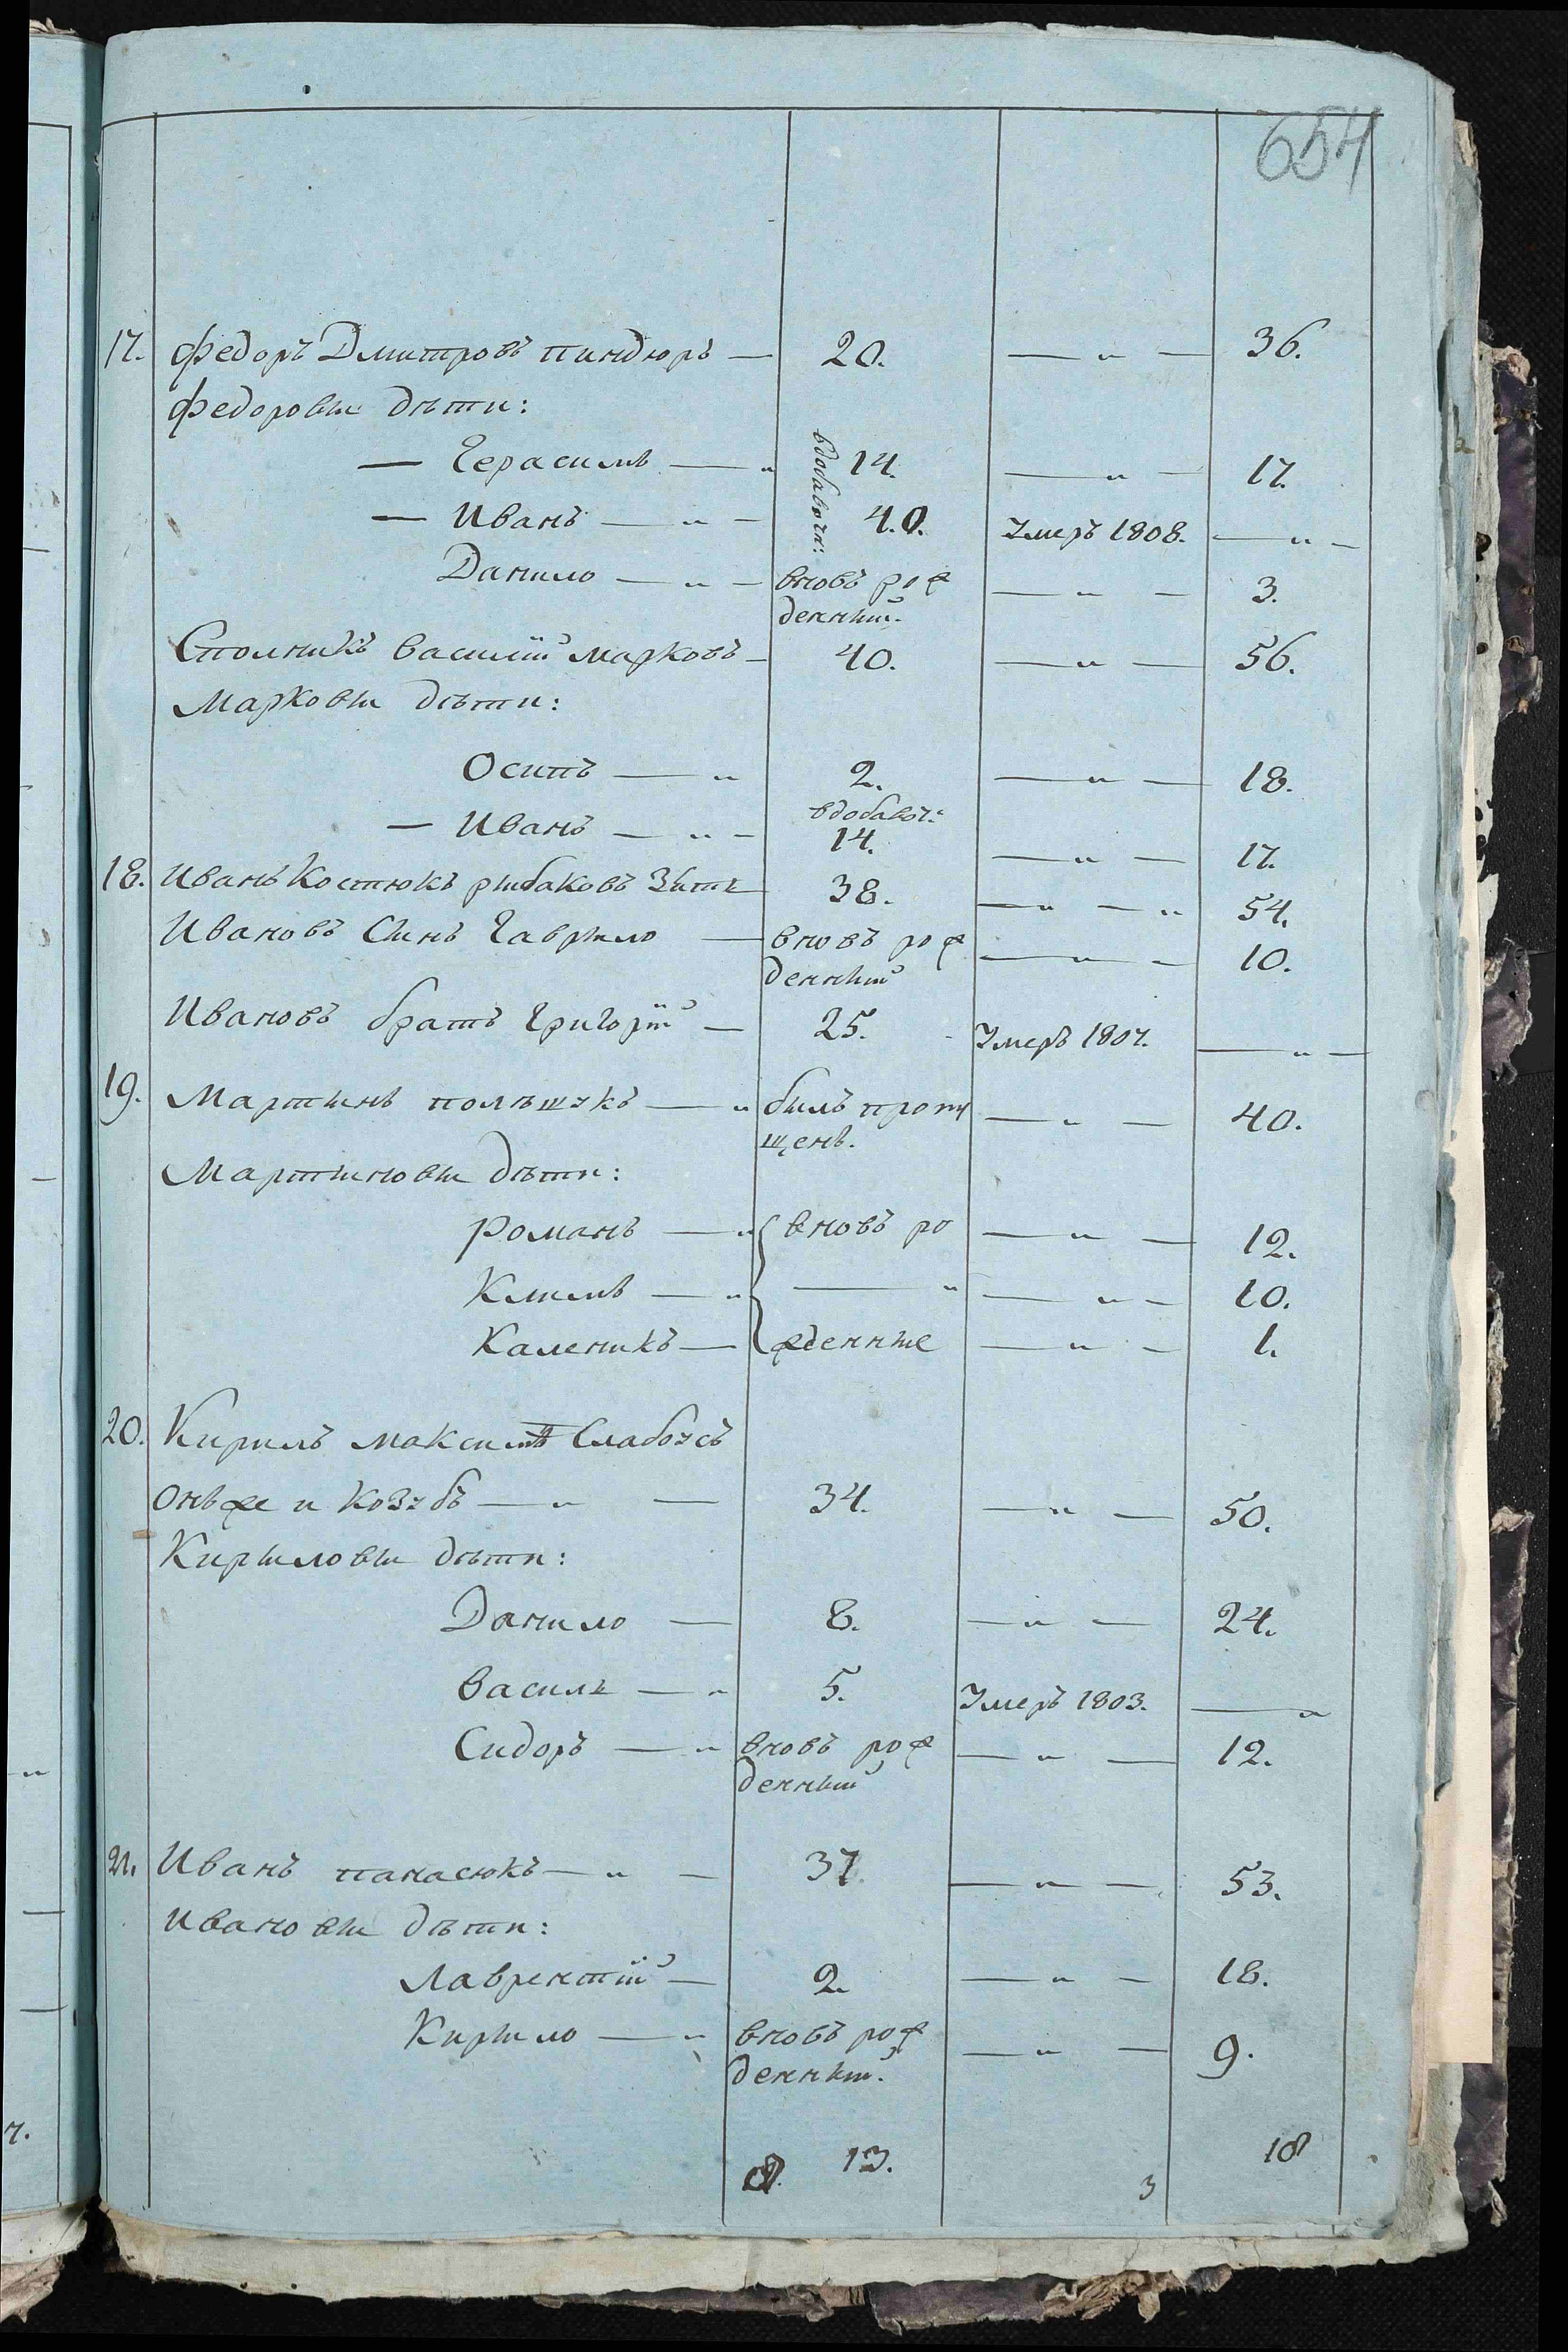 654
17. Федоръ Дмитровъ пиндюръ — 20. — " — 36.
Федоровы дѣти:
— Герасимъ — " вдобавоч: 14. — " — 17.
— Иванъ — " — 4.0. Умеръ 1808. — " —
Данило — " — вновь рож — " — 3.
денный.
Столникъ Василій Марковъ — 40. — " — 56.
Марковы дѣти:
Осипъ — " 2. — " — 18.
вдобавоч:
— Иванъ — " — 14. — " — 17.
18. Иванъ Костюкъ рыбаковъ Зять 38. — " — " 54.
Ивановъ Сынъ Гаврыло — вновъ рож — " — 10.
денный
Ивановъ братъ Григорій — 25. Умеръ 1807. — " —
19. Мартынъ полѣшукъ — " былъ пропу — " — 40.
щенъ.
Мартыновы дѣти:
Романъ — " вновъ ро — " — 12.
Климъ — " — " — " — 10.
Каленикъ — жденные — " — 1.
20. Кирилъ Максимъ Слабоусъ
Онъже и Козубъ — " — 34. — " — 50.
Кирыловы дѣти:
Данило — 8. — " — 24.
Василь — " 5. Умеръ 1803. — "
Сидоръ — " вновъ рож — " — 12.
денный
21. Иванъ панасюкъ — " — 37. — " — 53.
Ивановы дѣти:
Лаврентій — 2. — " — 18.
Кирыло — " вновъ рож — " — 9.
денный.
13. 3 18